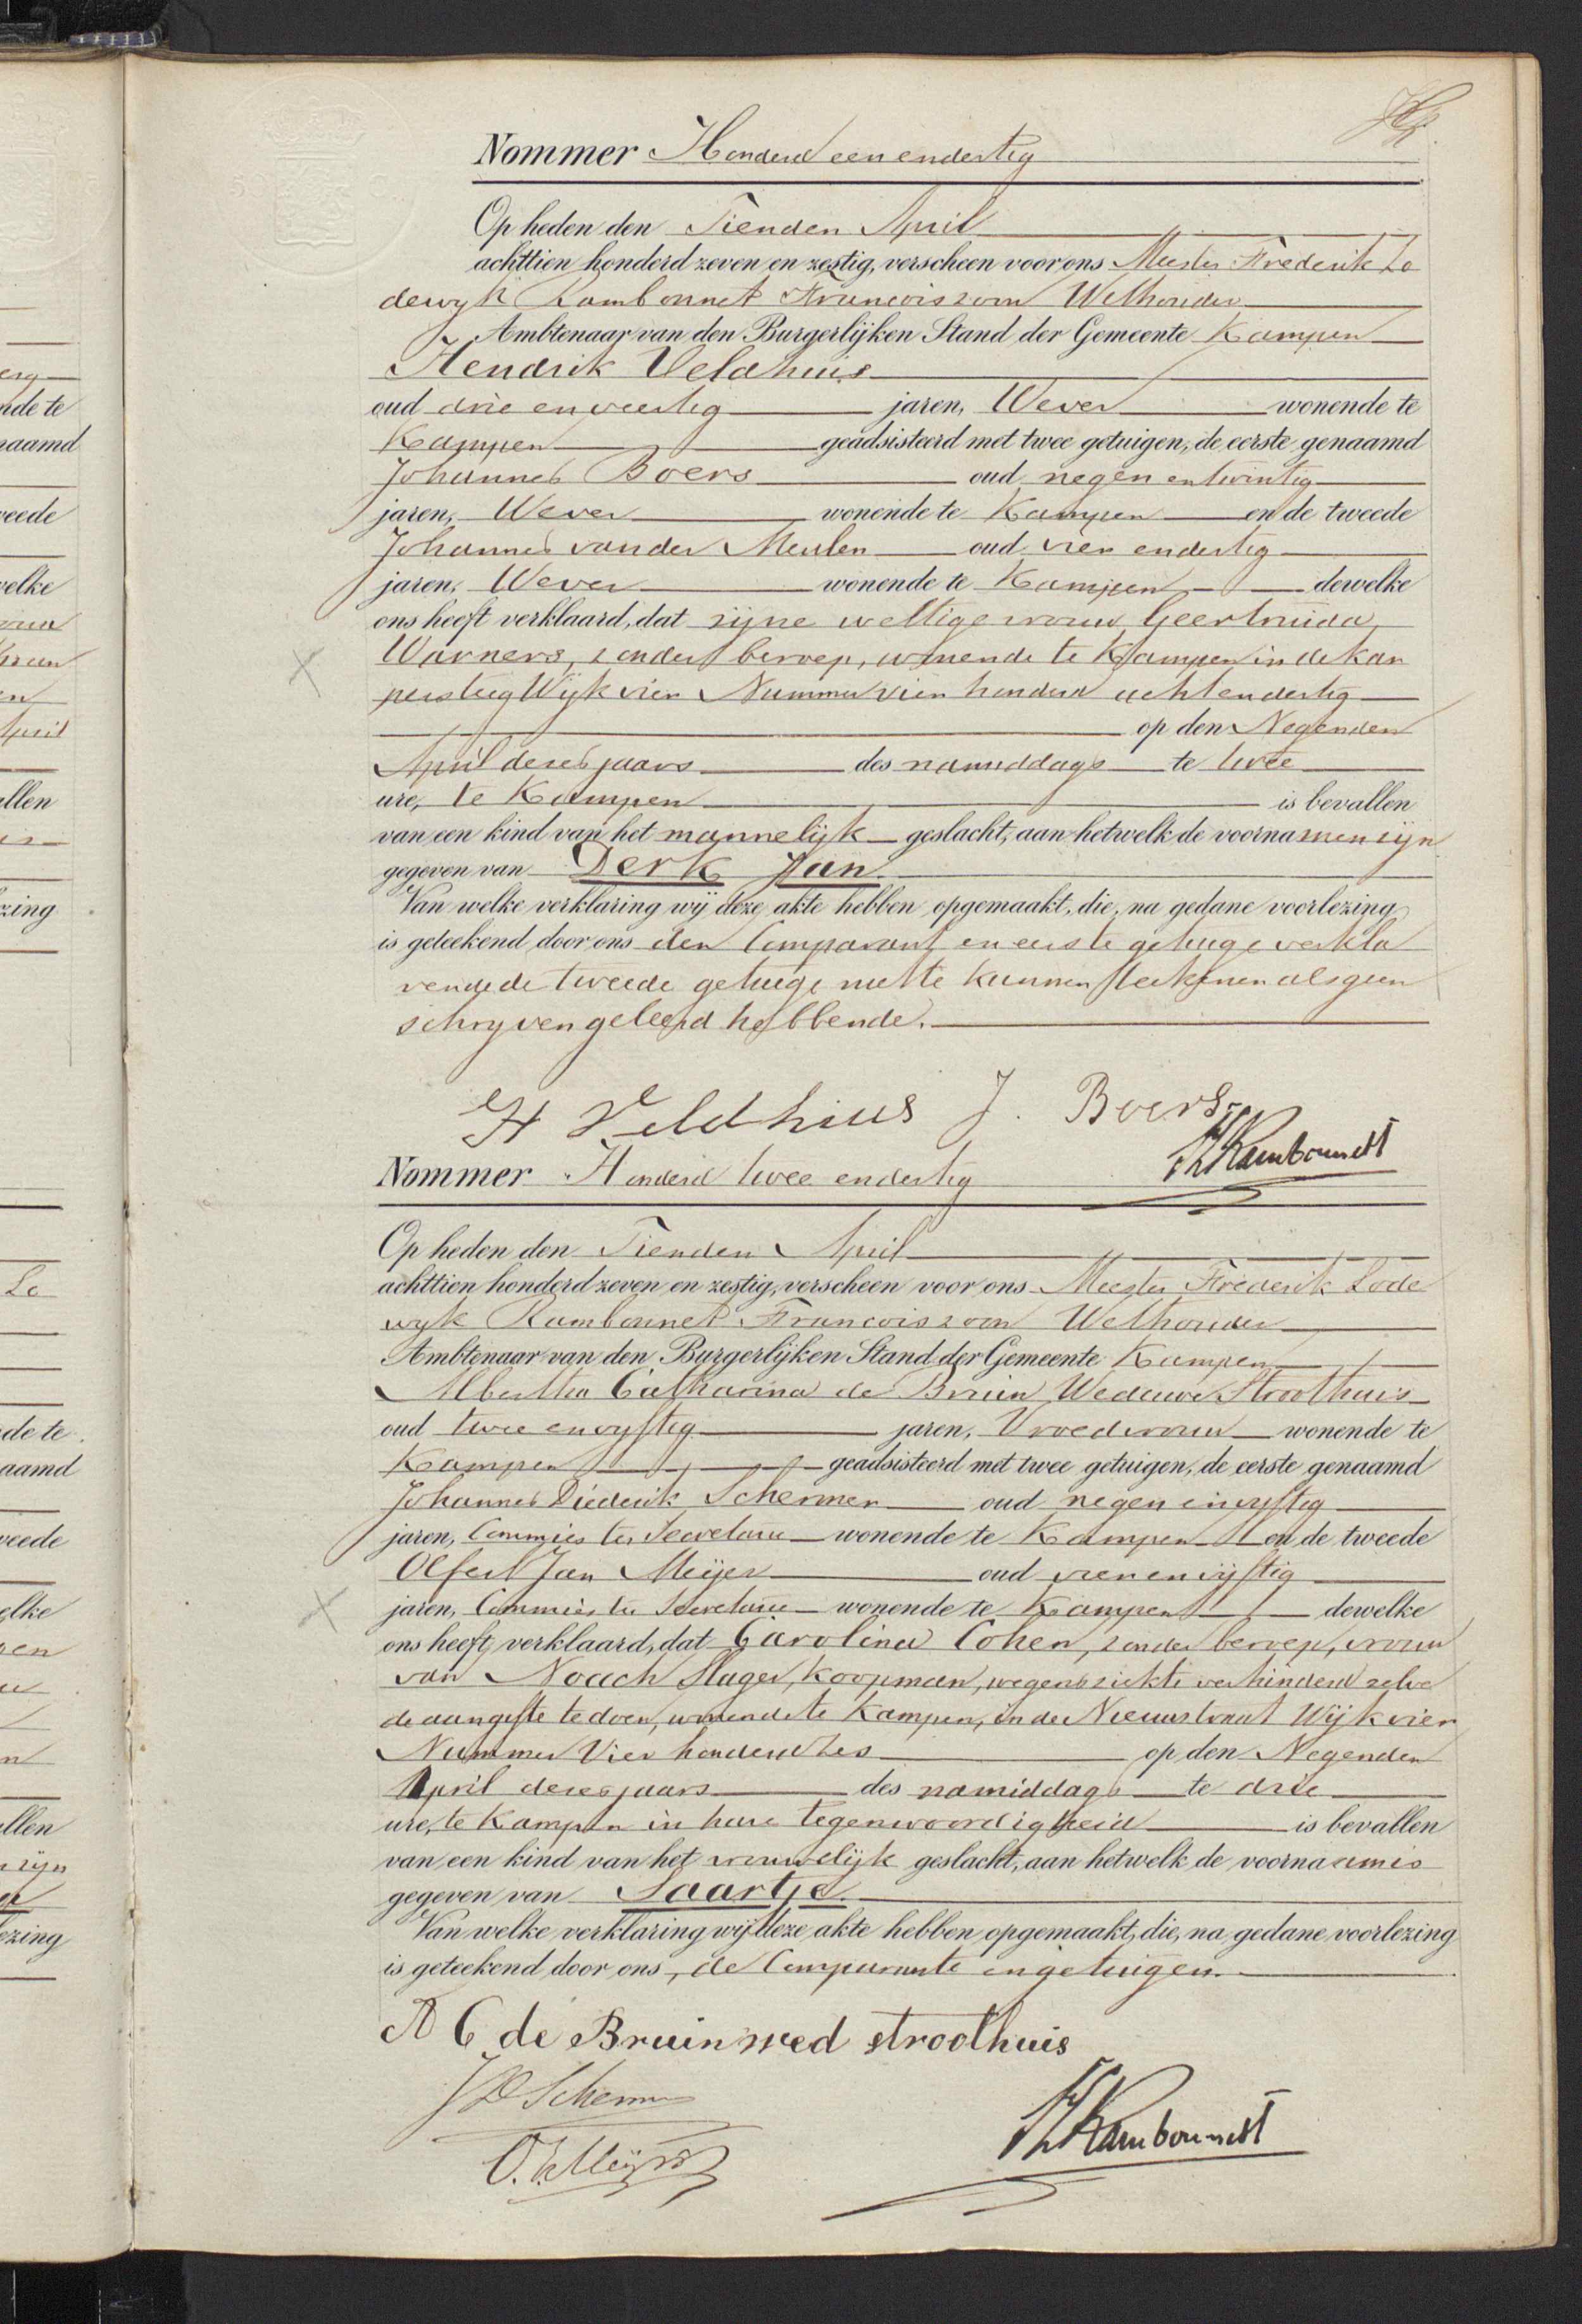 Nommer Honderd een en dertig
Op heden den Tienden April
achttien honderd zeven en zestig, verscheen voor ons Meester Frederik Lo
dewyk Rambonnet Francois zoon Wethouder
Ambtenaar van den Burgerlijken Stand der Gemeente Kampen
Hendrik Veldhuis
oud drie en veertig jaren, Wever wonende te
Kampen geadsisteerd met twee getuigen, de eerste genaamd
Johannes Boers oud negen en twintig
jaren, Wever wonende te Kampen en de tweede
Johannes van der Meulen oud vier en dertig
jaren, Wever wonende te Kampen dewelke
ons heeft verklaard, dat zijne wettige vrouw Geertruida
Warners, zonder beroep, wonende te Kampen in de Kam
persteeg Wijk vier Nummer vier honderd acht en dertig
op den Negenden
April dezes jaars des namiddags te twee
ure, te Kampen is bevallen
van een kind van het mannelijk geslacht, aan hetwelk de voornamen zijn
gegeven van Derk Jan.
Van welke verklaring wij deze akte hebben opgemaakt, die, na gedane voorlezing
is geteekend door ons den Comparant en eerste getuige verkla
rende de tweede getuige niet te kunnen teekenen als geen
schryven geleerd hebbende.
H Veldhuis J. Boers
FL Rambonnet
Nommer Honderd twee en dertig
Op heden den Tienden April
achttien honderd zeven en zestig, verscheen voor ons Meester Frederik Lode
wyk Rambonnet Francois zoon Wethouder
Ambtenaar van den Burgerlijken Stand der Gemeente Kampen
Albertha Catharina de Bruin Weduwe Stroothuis
oud twee en vyftig jaren, Vroedvrouw wonende te
Kampen geadsisteerd met twee getuigen, de eerste genaamd
Johannes Diederik Schermer oud negen en vyftig
jaren, Commies ter Secretarie wonende te Kampen en de tweede
Olfert Jan Meijer oud vier en vijftig
jaren, Commies ter Secretarie wonende te Kampen dewelke
ons heeft verklaard, dat Carolina Cohen, zonder beroep, vrouw
van Noach Slager, Koopman, wegens ziekte verhinderd zelve
de aangifte te doen, wonende te Kampen, in de Nieuwstraat Wijk vier
Nummer Vier honderd zes op den Negenden
April dezes jaars des namiddags te drie
ure, te Kampen in hare tegenwoordigheid is bevallen
van een kind van het vrouwelijk geslacht, aan hetwelk de voornaam is
gegeven van Saartje.
Van welke verklaring wij deze akte hebben opgemaakt, die, na gedane voorlezing
is geteekend door ons, de Comparante en getuigen.
A C de Bruin wed stroothuis
J D Schermer
O. J. Meijer
FL Rambonnet